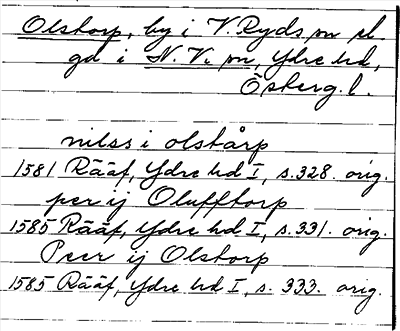 Olstorp, by i V. Ryds sn el.
gd i N. V. sn, Ydre hd,
Östergl.
nilss i olstårp
1581 Rääf, Ydre hd I, s. 328. orig.
per ij Olufftorp
1585 Rääf, Ydre hd I, s. 331. orig.
Peer ij Olstorp
1585 Rääf, Ydre hd I, s. 333. orig.